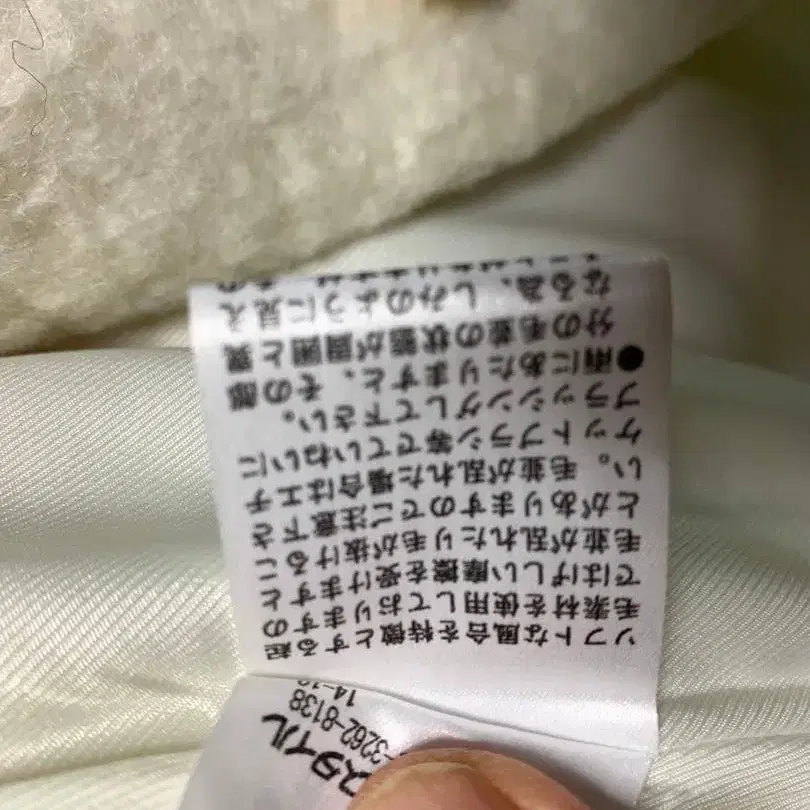 ソフトな風合を特徴とする起
毛素材を使用しておりますの
ではげしい摩擦を受けますと
毛並が乱れたり毛が抜けるこ
とがありますのでご注意下さ
い。毛並が乱れた場合はエチ
ケットブラシ等でていねいに
ブラッシングして下さい。
●雨にあたりますと、その部
分の毛並の状態が周囲と異
なる為、しみのように見え
ることがありますが、その
スタイル
-3262-8138
14-12